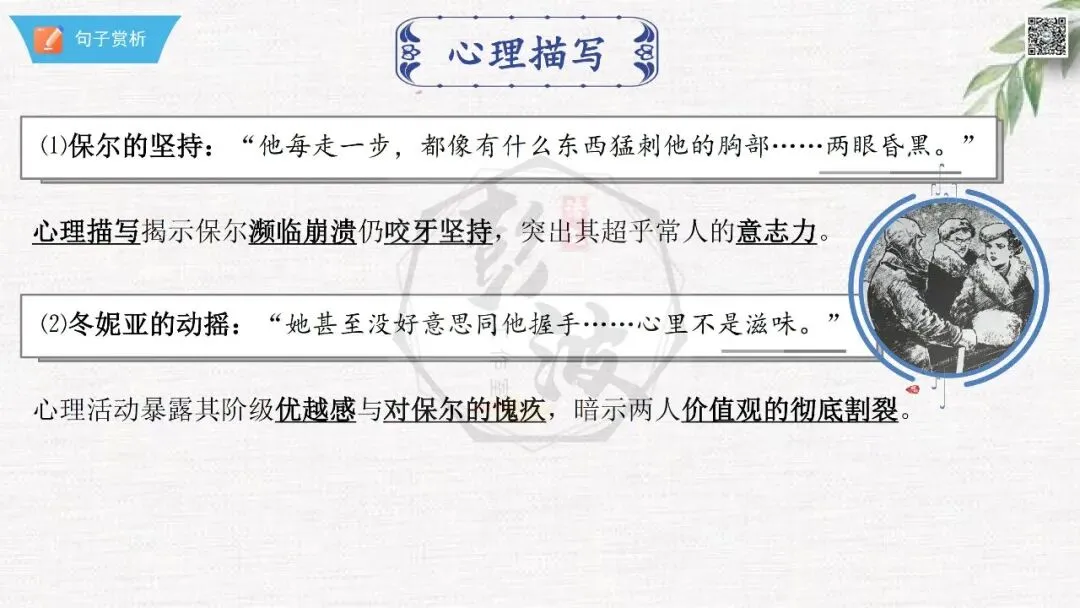 句子赏析
心理描写
⑴保尔的坚持：“他每走一步，都像有什么东西猛刺他的胸部……两眼昏黑。”
心理描写揭示保尔濒临崩溃仍咬牙坚持，突出其超乎常人的意志力。
⑵冬妮亚的动摇：“她甚至没好意思同他握手……心里不是滋味。”
心理活动暴露其阶级优越感与对保尔的愧疚，暗示两人价值观的彻底割裂。